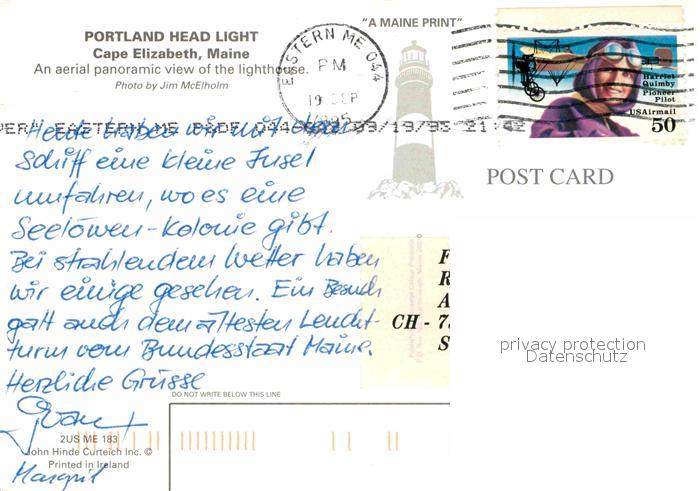 PORTLAND HEAD LIGHT
Cape Elizabeth, Maine
An aerial panoramic view of the lighthouse.
Photo by Jim McElholm
"A MAINE PRINT"
EASTERN ME 044
PM
19 SEP
1995
Harriet
Quimby
Pioneer
Pilot
USAirmail
50
EASTERN ME 09/19/95 21:42
POST CARD
Heute haben wir mit dem
Schiff eine kleine Insel
umfahren, wo es eine
Seelöwen-Kolonie gibt.
Bei strahlendem Wetter haben
wir einige gesehen. Ein Besuch
galt auch dem ältesten Leucht-
turm vom Bundesstaat Maine.
Herzliche Grüsse
F
R
A
CH - 7
S
privacy protection
Datenschutz
DO NOT WRITE BELOW THIS LINE
2US ME 183
John Hinde Curteich Inc. ©
Printed in Ireland
Margrit